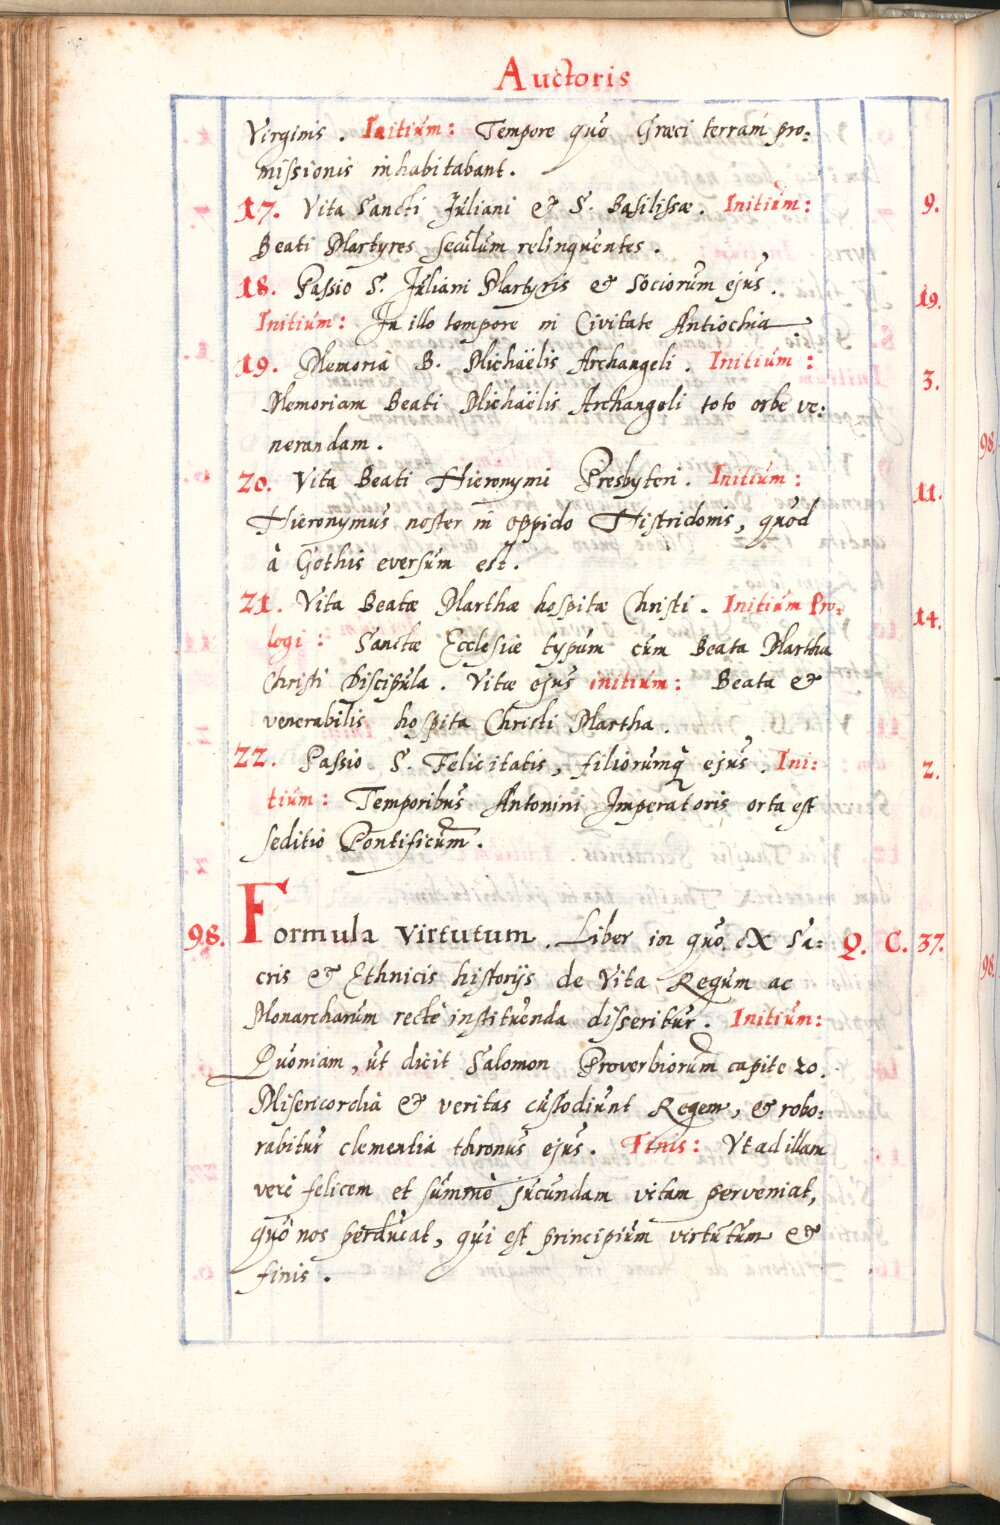 Auctoris
Virginis. Initium: Tempore quo Græci terram pro:
missionis inhabitabant.
17. Vita Sancti Juliani & S. Basilissæ. Initium: 9.
Beati Martyres seculum relinquentes.
18. Passio S. Juliani Martyris & Sociorum ejus. 19.
Initium: In illo tempore in Civitate Antiochia
19. Memoria B. Michaëlis Archangeli. Initium: 3.
Memoriam Beati Michaëlis Archangeli toto orbe ve:
nerandam.
20. Vita Beati Hieronymi Presbyteri. Initium: 11.
Hieronymus noster in oppido Histridonis, quod
à Gothis eversum est.
21. Vita Beatæ Marthæ hospitæ Christi. Initium Pro: 14.
logi: Sanctæ Ecclesiæ typum cum Beata Martha
Christi Discipula. Vitæ ejus initium: Beata &
venerabilis hospita Christi Martha.
22. Passio S. Felicitatis, filiorumq ejus. Ini: 2.
tium: Temporibus Antonini Imperatoris orta est
seditio Pontificum.
98. Formula Virtutum. Liber in quo ex Sa: Q. C. 37.
cris & Ethnicis historijs de Vita Regum ac
Monarcharum rectè instituenda disseritur. Initium:
Quoniam, ut dicit Salomon Proverbiorum capite 20.
Misericordia & veritas custodiunt Regem, & robo:
rabitur clementia thronus ejus. Finis: Vt ad illam
verè felicem et summè jucundam vitam perveniat,
quò nos perducat, qui est principium virtutum &
finis.
98.
98.